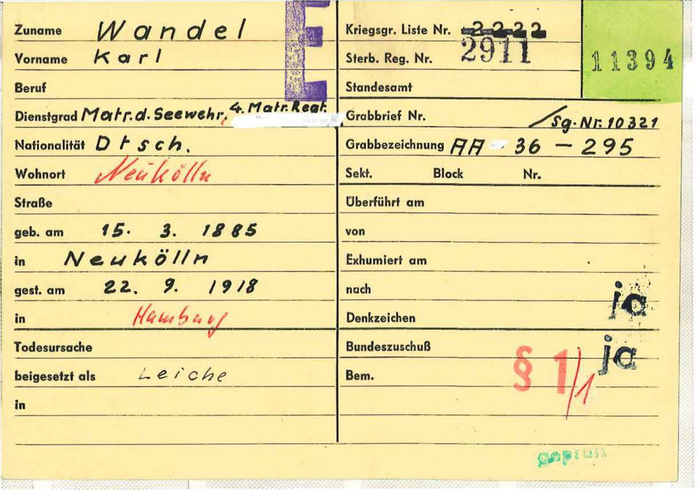 Zuname Wandel
Vorname Karl
Beruf
Dienstgrad Matr.d.Seewehr, 4.Matr.Regt.
Nationalität Dtsch.
Wohnort Neukölln
Straße
geb. am 15. 3. 1885
in Neukölln
gest. am 22. 9. 1918
in Hamburg
Todesursache
beigesetzt als Leiche
in
E
Kriegsgr. Liste Nr. 2222
Sterb. Reg. Nr. 2911
11394
Standesamt
Grabbrief Nr. /Sg.Nr.10321
Grabbezeichnung AA 36 - 295
Sekt. Block Nr.
Überführt am
von
Exhumiert am
nach
Denkzeichen ja
Bundeszuschuß ja
Bem. § 1/1